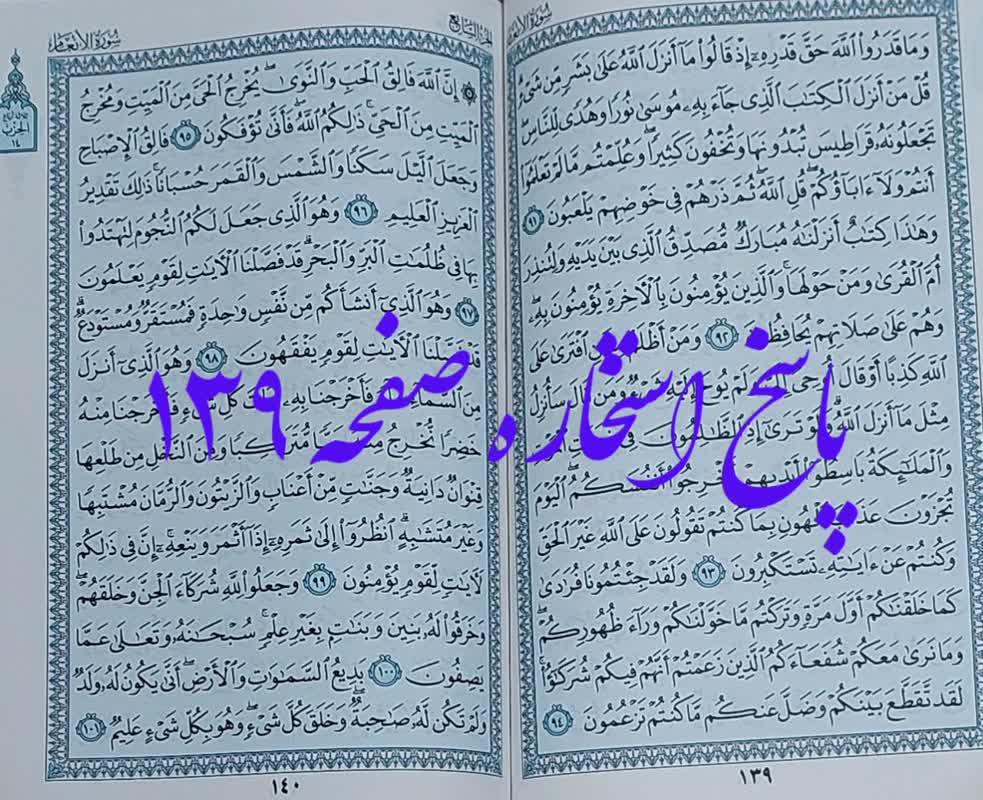 سورة الأنعام
الجزء السابع
وَمَا قَدَرُوا۟ ٱللَّهَ حَقَّ قَدْرِهِۦٓ إِذْ قَالُوا۟ مَآ أَنزَلَ ٱللَّهُ عَلَىٰ بَشَرٍ مِّن شَىْءٍ
قُلْ مَنْ أَنزَلَ ٱلْكِتَٰبَ ٱلَّذِى جَآءَ بِهِۦ مُوسَىٰ نُورًا وَهُدًى لِّلنَّاسِ
تَجْعَلُونَهُۥ قَرَاطِيسَ تُبْدُونَهَا وَتُخْفُونَ كَثِيرًا وَعُلِّمْتُم مَّا لَمْ تَعْلَمُوٓا۟
أَنتُمْ وَلَآ ءَابَآؤُكُمْ قُلِ ٱللَّهُ ثُمَّ ذَرْهُمْ فِى خَوْضِهِمْ يَلْعَبُونَ ٩١
وَهَٰذَا كِتَٰبٌ أَنزَلْنَٰهُ مُبَارَكٌ مُّصَدِّقُ ٱلَّذِى بَيْنَ يَدَيْهِ وَلِتُنذِرَ
أُمَّ ٱلْقُرَىٰ وَمَنْ حَوْلَهَا وَٱلَّذِينَ يُؤْمِنُونَ بِٱلْءَاخِرَةِ يُؤْمِنُونَ بِهِۦ
وَهُمْ عَلَىٰ صَلَاتِهِمْ يُحَافِظُونَ ٩٢ وَمَنْ أَظْلَمُ مِمَّنِ ٱفْتَرَىٰ عَلَى
ٱللَّهِ كَذِبًا أَوْ قَالَ أُوحِىَ إِلَىَّ وَلَمْ يُوحَ إِلَيْهِ شَىْءٌ وَمَن قَالَ سَأُنزِلُ
مِثْلَ مَآ أَنزَلَ ٱللَّهُ وَلَوْ تَرَىٰٓ إِذِ ٱلظَّٰلِمُونَ فِى غَمَرَٰتِ ٱلْمَوْتِ
وَٱلْمَلَٰٓئِكَةُ بَاسِطُوٓا۟ أَيْدِيهِمْ أَخْرِجُوٓا۟ أَنفُسَكُمُ ٱلْيَوْمَ
تُجْزَوْنَ عَذَابَ ٱلْهُونِ بِمَا كُنتُمْ تَقُولُونَ عَلَى ٱللَّهِ غَيْرَ ٱلْحَقِّ
وَكُنتُمْ عَنْ ءَايَٰتِهِۦ تَسْتَكْبِرُونَ ٩٣ وَلَقَدْ جِئْتُمُونَا فُرَٰدَىٰ
كَمَا خَلَقْنَٰكُمْ أَوَّلَ مَرَّةٍ وَتَرَكْتُم مَّا خَوَّلْنَٰكُمْ وَرَآءَ ظُهُورِكُمْ
وَمَا نَرَىٰ مَعَكُمْ شُفَعَآءَكُمُ ٱلَّذِينَ زَعَمْتُمْ أَنَّهُمْ فِيكُمْ شُرَكَٰٓؤُا۟
لَقَد تَّقَطَّعَ بَيْنَكُمْ وَضَلَّ عَنكُم مَّا كُنتُمْ تَزْعُمُونَ ٩٤
١٣٩
سورة الأنعام
إِنَّ ٱللَّهَ فَالِقُ ٱلْحَبِّ وَٱلنَّوَىٰ يُخْرِجُ ٱلْحَىَّ مِنَ ٱلْمَيِّتِ وَمُخْرِجُ
ٱلْمَيِّتِ مِنَ ٱلْحَىِّ ذَٰلِكُمُ ٱللَّهُ فَأَنَّىٰ تُؤْفَكُونَ ٩٥ فَالِقُ ٱلْإِصْبَاحِ
وَجَعَلَ ٱلَّيْلَ سَكَنًا وَٱلشَّمْسَ وَٱلْقَمَرَ حُسْبَانًا ذَٰلِكَ تَقْدِيرُ
ٱلْعَزِيزِ ٱلْعَلِيمِ ٩٦ وَهُوَ ٱلَّذِى جَعَلَ لَكُمُ ٱلنُّجُومَ لِتَهْتَدُوا۟
بِهَا فِى ظُلُمَٰتِ ٱلْبَرِّ وَٱلْبَحْرِ قَدْ فَصَّلْنَا ٱلْءَايَٰتِ لِقَوْمٍ يَعْلَمُونَ
٩٧ وَهُوَ ٱلَّذِىٓ أَنشَأَكُم مِّن نَّفْسٍ وَٰحِدَةٍ فَمُسْتَقَرٌّ وَمُسْتَوْدَعٌ
قَدْ فَصَّلْنَا ٱلْءَايَٰتِ لِقَوْمٍ يَفْقَهُونَ ٩٨ وَهُوَ ٱلَّذِىٓ أَنزَلَ
مِنَ ٱلسَّمَآءِ مَآءً فَأَخْرَجْنَا بِهِۦ نَبَاتَ كُلِّ شَىْءٍ فَأَخْرَجْنَا مِنْهُ
خَضِرًا نُّخْرِجُ مِنْهُ حَبًّا مُّتَرَاكِبًا وَمِنَ ٱلنَّخْلِ مِن طَلْعِهَا
قِنْوَانٌ دَانِيَةٌ وَجَنَّٰتٍ مِّنْ أَعْنَابٍ وَٱلزَّيْتُونَ وَٱلرُّمَّانَ مُشْتَبِهًا
وَغَيْرَ مُتَشَٰبِهٍ ٱنظُرُوٓا۟ إِلَىٰ ثَمَرِهِۦٓ إِذَآ أَثْمَرَ وَيَنْعِهِۦٓ إِنَّ فِى ذَٰلِكُمْ
لَءَايَٰتٍ لِّقَوْمٍ يُؤْمِنُونَ ٩٩ وَجَعَلُوا۟ لِلَّهِ شُرَكَآءَ ٱلْجِنَّ وَخَلَقَهُمْ
وَخَرَقُوا۟ لَهُۥ بَنِينَ وَبَنَٰتٍۭ بِغَيْرِ عِلْمٍ سُبْحَٰنَهُۥ وَتَعَٰلَىٰ عَمَّا
يَصِفُونَ ١٠٠ بَدِيعُ ٱلسَّمَٰوَٰتِ وَٱلْأَرْضِ أَنَّىٰ يَكُونُ لَهُۥ وَلَدٌ
وَلَمْ تَكُن لَّهُۥ صَٰحِبَةٌ وَخَلَقَ كُلَّ شَىْءٍ وَهُوَ بِكُلِّ شَىْءٍ عَلِيمٌ ١٠١
١٤٠
الحزب
١٤
پاسخ استخاره صفحه ۱۳۹